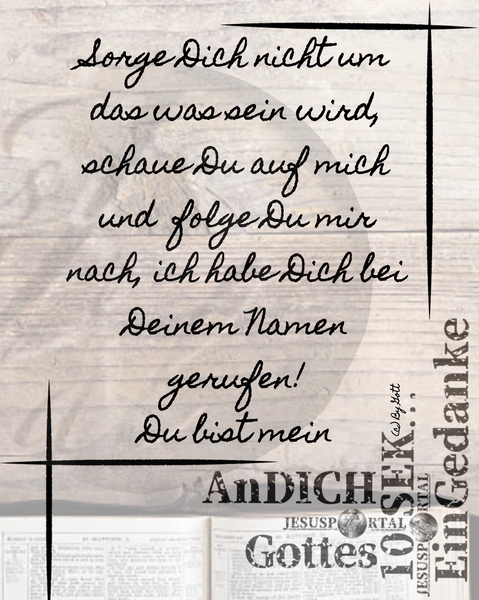 Sorge Dich nicht um
das was sein wird,
schaue Du auf mich
und folge Du mir
nach, ich habe Dich bei
Deinem Namen
gerufen!
Du bist mein
(c) By Gott
AnDICH
JESUSPORTAL
Gottes
10SEK...
JESUSPORTAL
EinGedanke